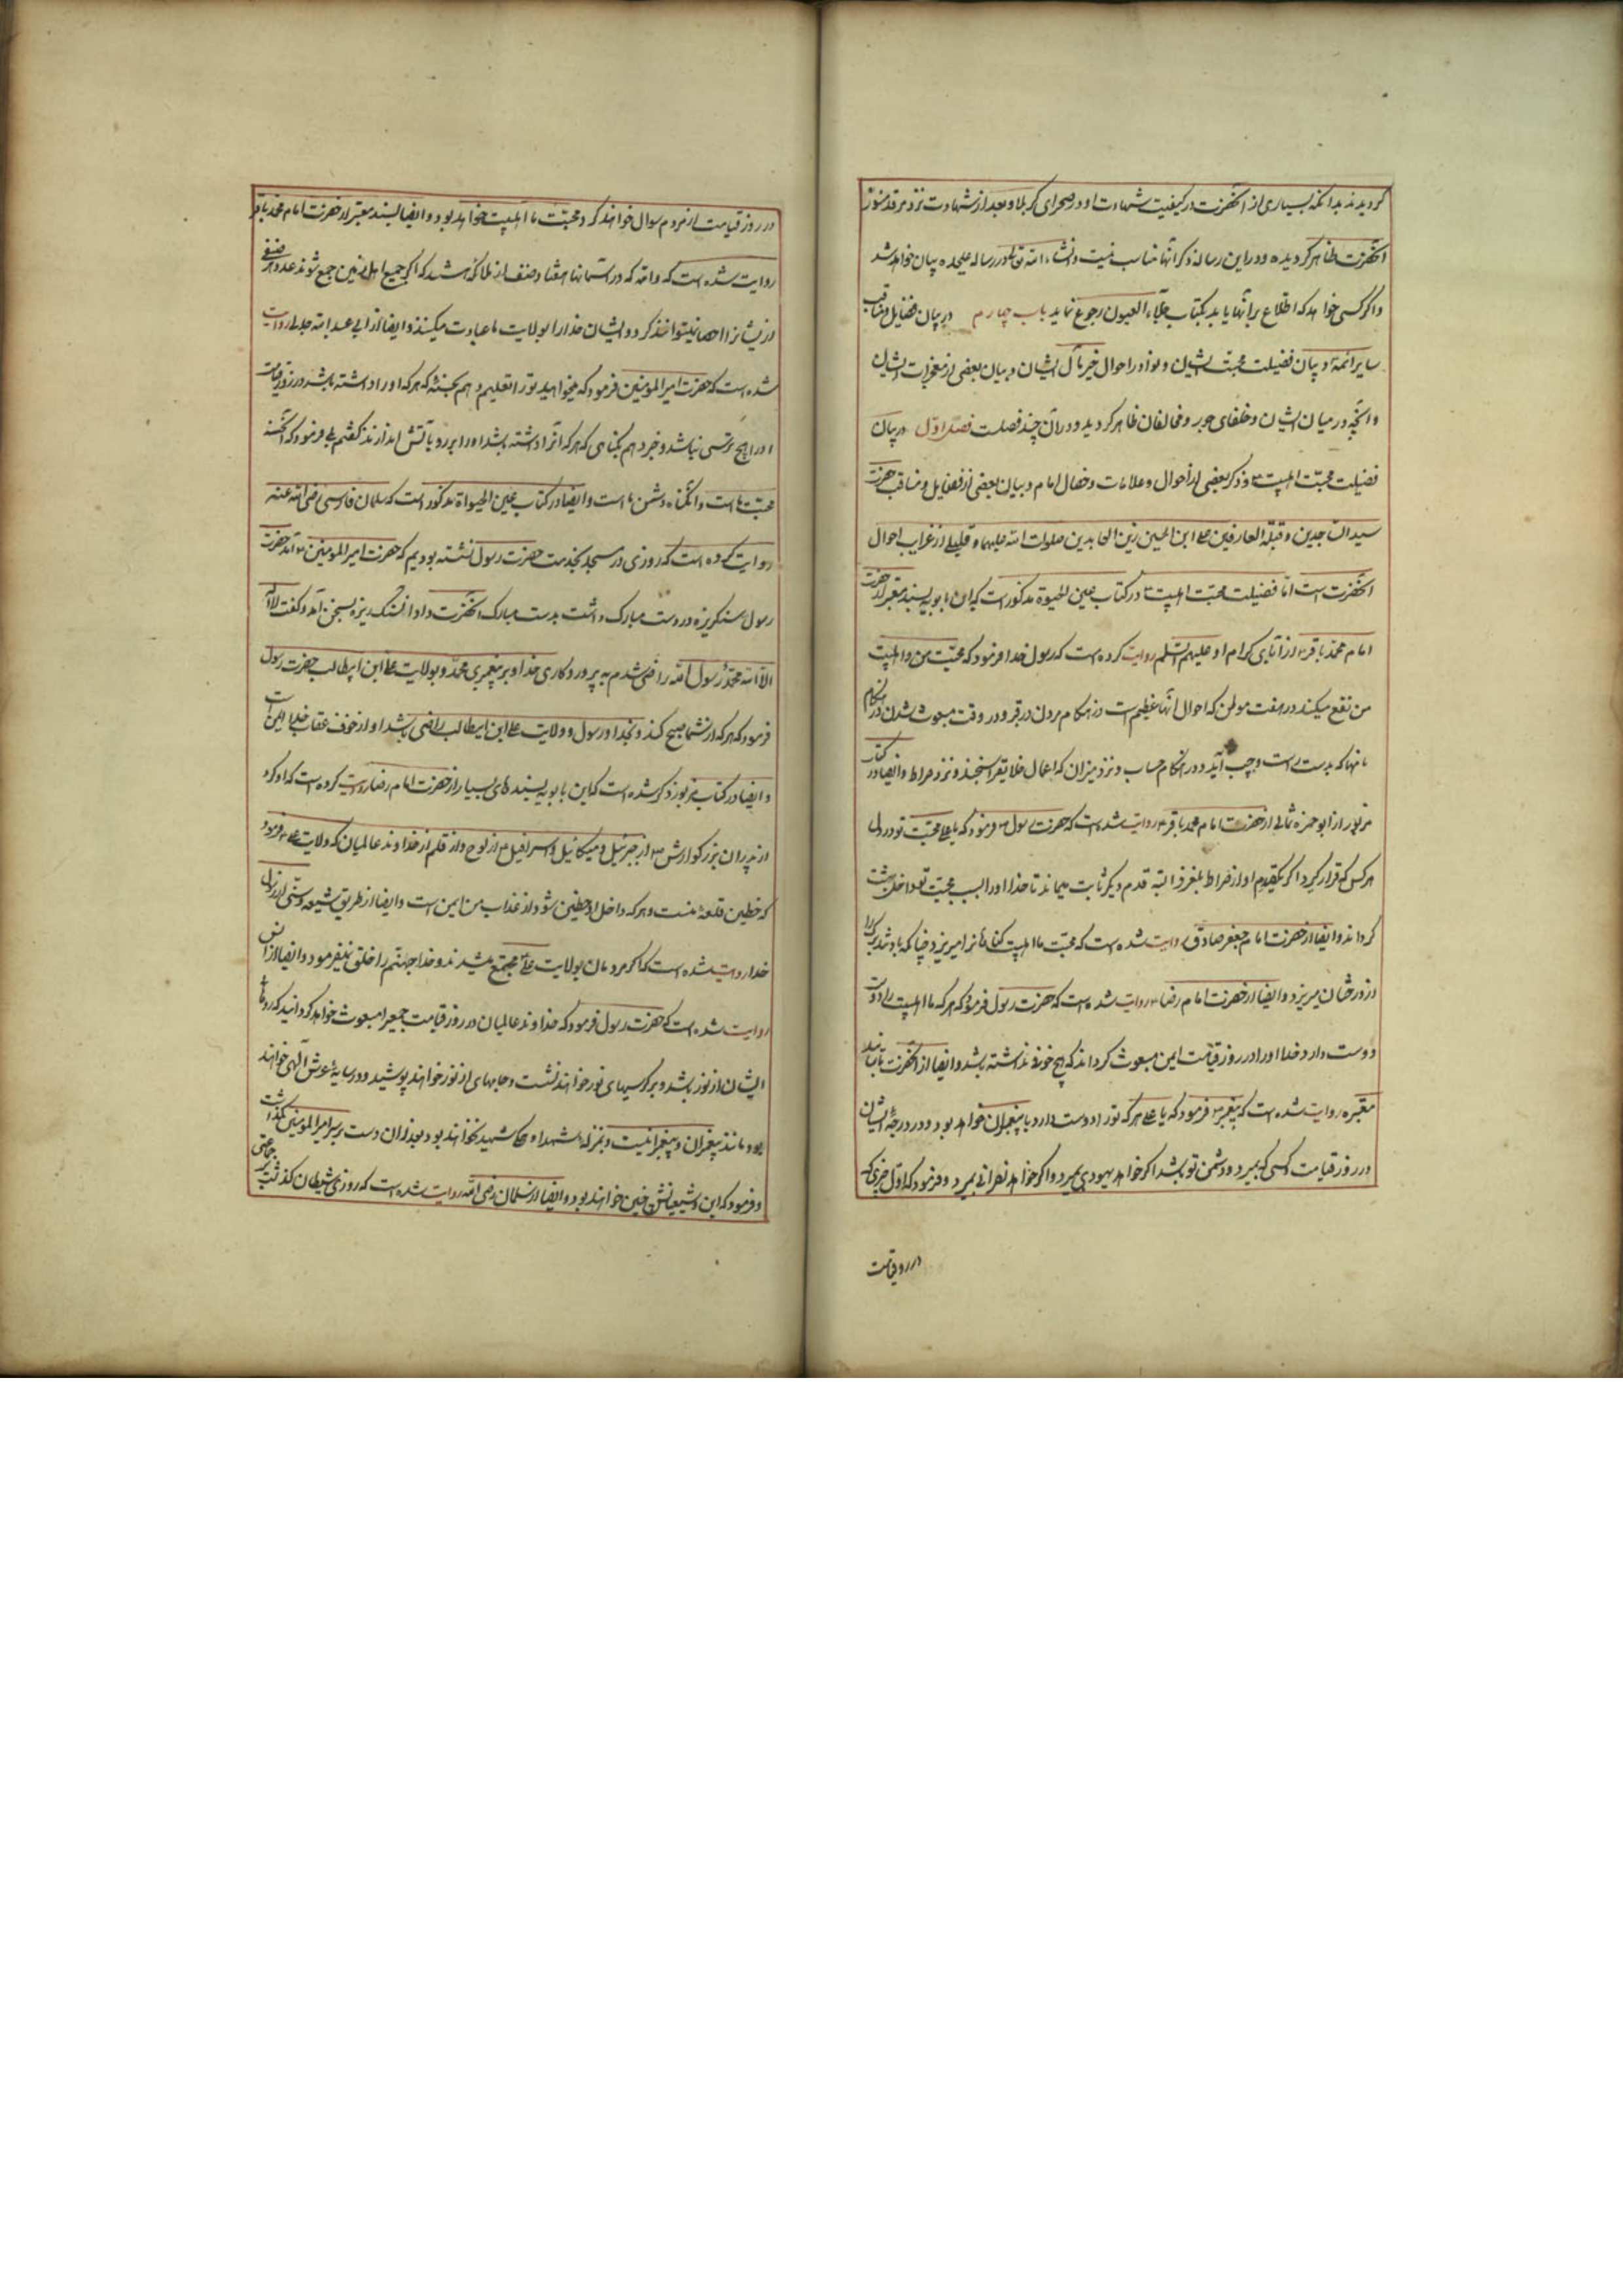 گردیدند بدانکه بسیاری از آنحضرت در کیفیت شهادت او در صحرای کربلا و بعد از شهادت نزد مرقد منور
آنحضرت ظاهر گردیده و در این رساله ذکر آنها مناسب نیست و انشاء الله تعالی در رساله علیحده بیان خواهد شد
و اگر کسی خواهد که اطلاع بر آنها یابد بکتاب جلاء العیون رجوع نماید باب چهارم در بیان فضایل و مناقب
سایر ائمه و بیان فضیلت محبت ایشان و نوادر احوال خیر مآل ایشان و بیان بعضی از معجزات ایشان
و آنچه در میان ایشان و خلفای جور و مخالفان ظاهر گردید و در آن چند فصلست فصل اول در بیان
فضیلت محبت اهلبیت و ذکر بعضی از احوال و علامات و خصال امام و بیان بعضی از فضایل و مناقب حضرت
سید الساجدین و قبلة العارفین علی ابن الحسین زین العابدین صلوات الله علیهما و قلیلی از غرایب احوال
آنحضرت است اما فضیلت محبت اهلبیت در کتاب عین الحیوة مذکور است که ابن بابویه بسند معتبر از حضرت
امام محمد باقر از آبای کرام او علیهم السلم روایت کرده است که رسول خدا فرمود که محبت من و اهلبیت
من نفع میکند در هفت موطن که احوال آنها عظیم است در هنگام مردن در قبر و در وقت مبعوث شدن در هنگام
نامها که بدست راست و چپ آید و در هنگام حساب و نزد میزان که اعمال خلایق را سنجند و نزد صراط و ایضا در کتاب
مزبور از ابو حمزه ثمالی از حضرت امام محمد باقر روایت شده است که حضرت رسول فرمود که یا علی محبت تو در دل
هر کس که قرار گیرد اگر یکقدم او از صراط بلغزد البته قدم دیگر ثابت میماند تا خدا او را بسبب محبت تو داخل بهشت
گرداند و ایضا از حضرت امام جعفر صادق روایت شده است که محبت ما اهلبیت گناهانرا میریزد چنانکه باد تند برگ را
از درختان میریزد و ایضا از حضرت امام رضا روایت شده است که حضرت رسول فرمود که هر که ما اهلبیت را دوست
دوست دارد خدا او را در روز قیامت ایمن مبعوث گرداند که هیچ خوفی نداشته باشد و ایضا از آنحضرت باسانید
معتبره روایت شده است که پیغمبر فرمود که یا علی هر که تو را دوست دارد با پیغمبران خواهد بود و در درجه ایشان
در روز قیامت و کسی که بمیرد و دشمن تو باشد اگر خواهد یهودی بمیرد و اگر خواهد نصرانی بمیرد و فرمود که اول چیزی که
در روز قیامت
در روز قیامت از مردم سوال خواهند کرد محبت ما اهلبیت خواهد بود و ایضا بسند معتبر از حضرت امام محمد باقر
روایت شده است که والله که در آسمانها هفتاد صنف از ملائکه هستند که اگر جمیع اهل زمین جمع شوند عدد هر صنفی
از ایشانرا احصا نیتوانند کرد و ایشان خدا را بولایت ما عبادت میکنند و ایضا از ابی عبد الله جدلی روایت
شده است که حضرت امیر المومنین فرمود که میخواهید تو را تعلیم دهم بحسنه که هر که او را داشته باشد در روز قیامت
او را هیچ ترسی نباشد و خبر دهم بگناهی که هر که آنرا داشته باشد او را بر رو بآتش اندازند گفتم بلی فرمود که آنحسنه
محبت ما است و آنگناه دشمنی ما است و ایضا در کتاب عین الحیواة مذکور است که سلمان فارسی رضی الله عنه
روایت کرده است که روزی در مسجد بخدمت حضرت رسول نشسته بودیم که حضرت امیر المومنین آمد حضرت
رسول سنگریزه در دست مبارک داشت بدست مبارک آنحضرت داد آنسنگ ریزه بسخن آمد و گفت لا اله
الا الله محمد رسول الله راضی شدم به پروردگاری خدا و به پیغمبری محمد و بولایت علی ابن ابیطالب حضرت رسول
فرمود که هر که از شما صبح کند و بخدا و رسول و ولایت علی ابن ابیطالب راضی باشد او از خوف عقاب خدا ایمن است
و ایضا در کتاب مزبور ذکر شده است که ابن بابویه بسندهای بسیار از حضرت امام رضا روایت کرده است که او کرد
از پدران بزرگوارش از جبرئیل و میکائیل و اسرافیل از لوح و از قلم از خداوند عالمیان که ولایت علی فرمود
که حصین قلعهٔ منست و هر که داخل او حصین شود از عذاب من ایمن است و ایضا از طریق شیعه و سنی از رسول
خدا روایت شده است که اگر مردمان بولایت علی مجتمع میشدند و خدا جهنم را خلق نمیفرمود و ایضا از انس
روایت شده است که حضرت رسول فرمود که خداوند عالمیان در روز قیامت جمعیرا مبعوث خواهد گردانید که روهای
ایشان از نور باشد و بر کرسیهای نور خواهند نشست و جامهای از نور خواهند پوشید و در سایهٔ عرش الهی خواهند
بود مانند پیغمبران و پیغمبر نیست و بمنزله شهداء و شهید نخواهند بود بعد از آن دست بر سر امیر المومنین گذاشت
و فرمود که این و شیعیانش چنین خواهند بود و ایضا از سلمان رضی الله روایت شده است که روزی شیطان گذشت بر جماعتی